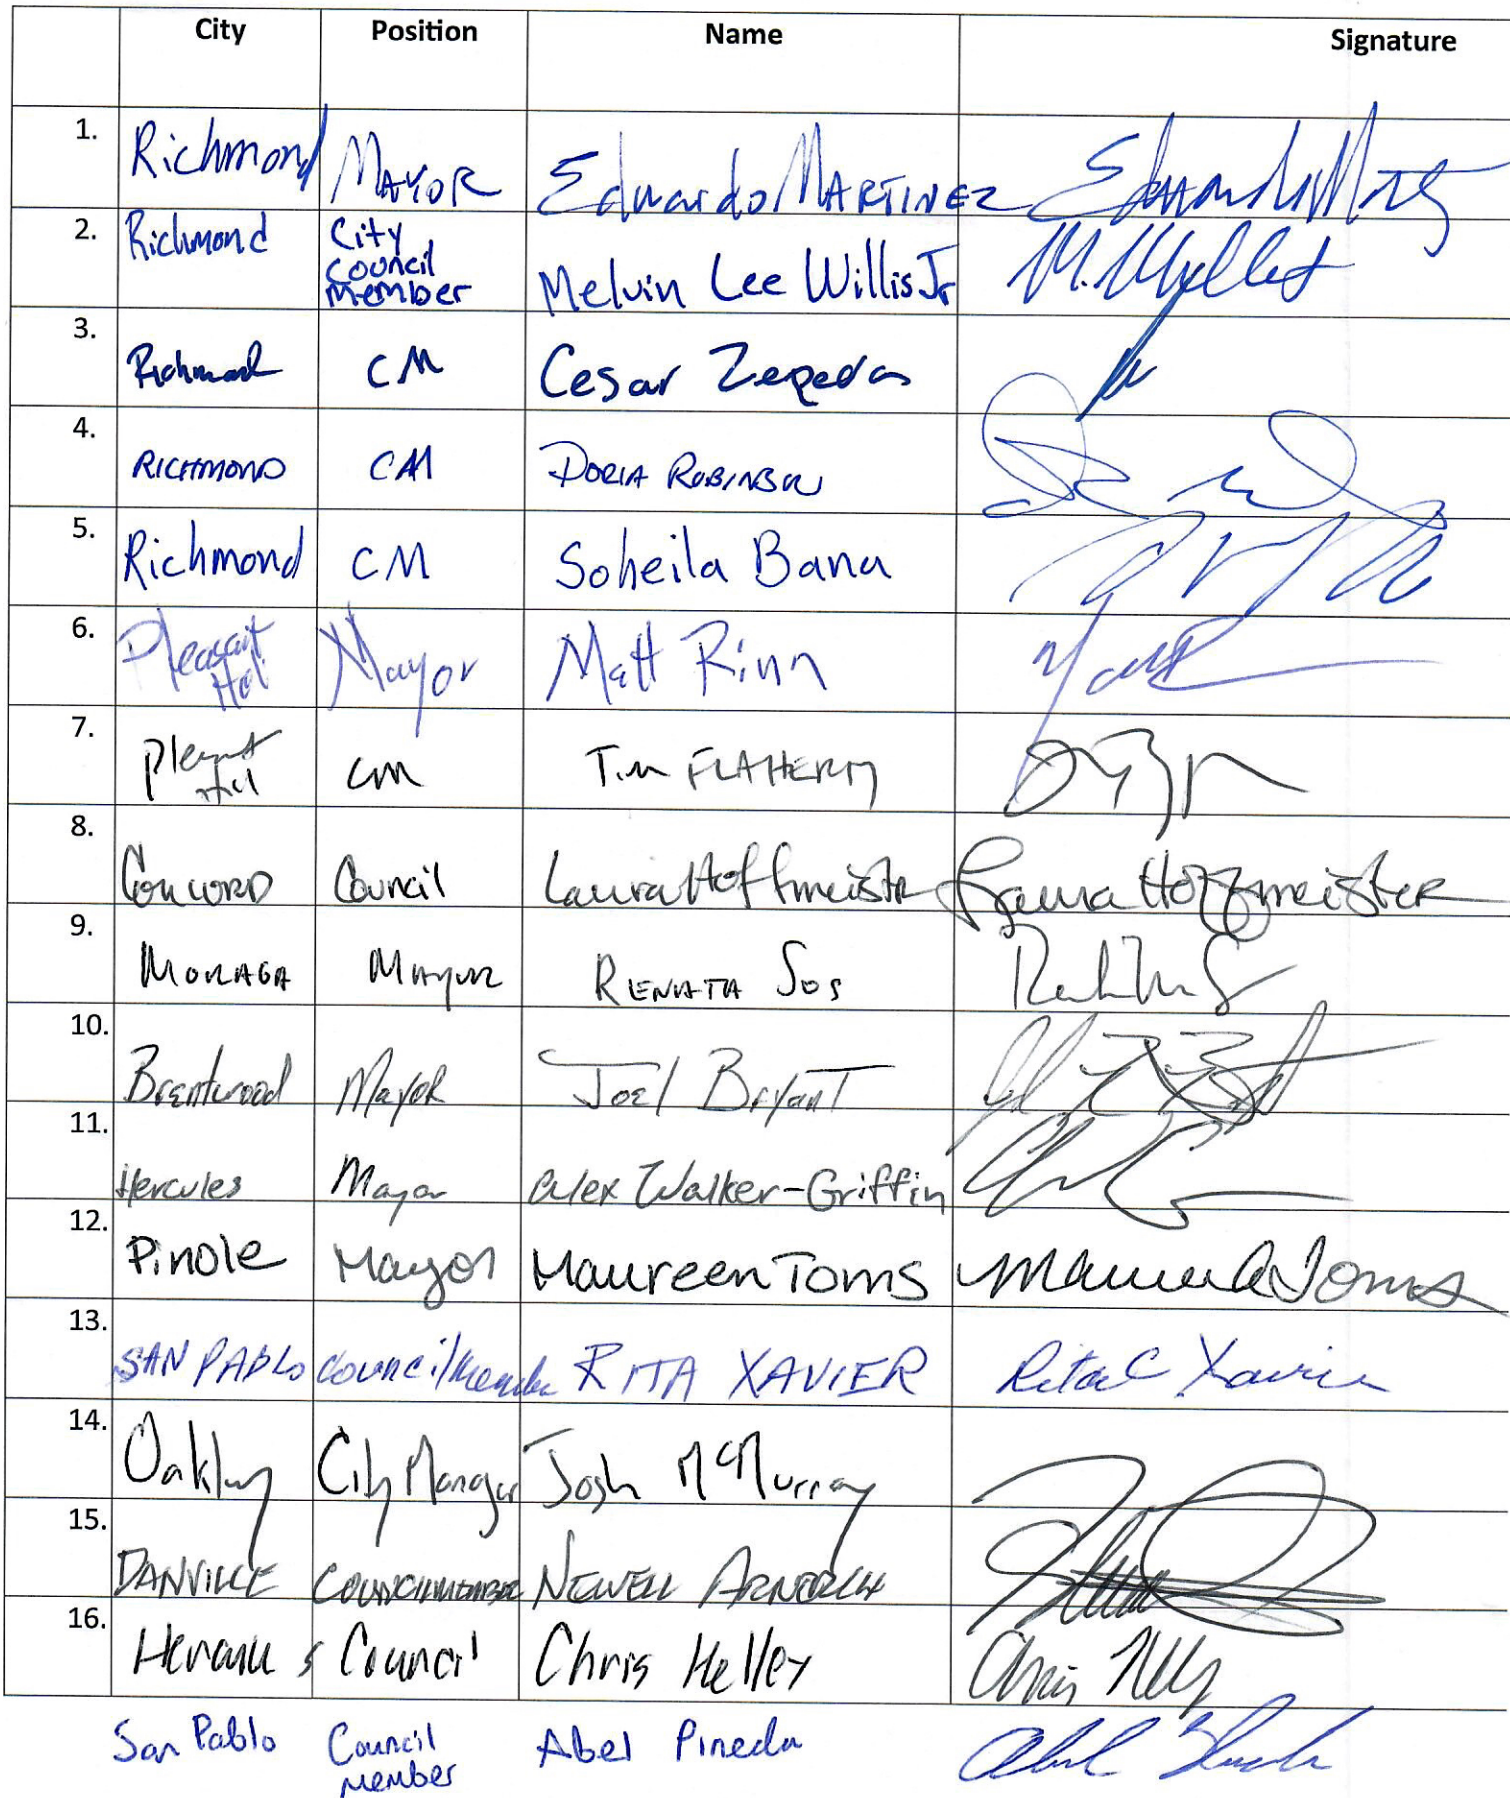 City Position Name Signature
1. Richmond MAYOR Eduardo MARTINEZ
2. Richmond City Council Member Melvin Lee Willis Jr M. Willis
3. Richmond CM Cesar Zepeda
4. RICHMOND CM DORIA ROBINSON
5. Richmond CM Soheila Bana
6. Pleasant Hill Mayor Matt Rinn
7. Pleasant Hill CM Tim FLAHERTY
8. CONCORD Council Laura Hoffmeister Laura Hoffmeister
9. MORAGA Mayor RENATA SOS
10. Brentwood Mayor Joel Bryant
11. Hercules Mayor Alex Walker-Griffin
12. Pinole Mayor Maureen Toms Maureen Toms
13. SAN PABLO Councilmember RITA XAVIER Rita C Xavier
14. Oakley City Manager Josh McMurray
15. DANVILLE COUNCILMEMBER NEWELL ARNERICH
16. Hercules Council Chris Kelley Chris Kelley
San Pablo Council Member Abel Pineda Abel Pineda